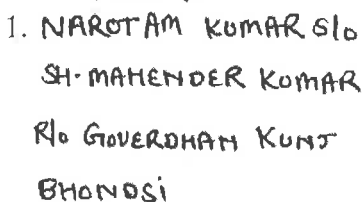 1. NAROTAM KUMAR S/o
SH. MAHENDER KUMAR
R/o GOVERDHAN KUNJ
BHONDSI